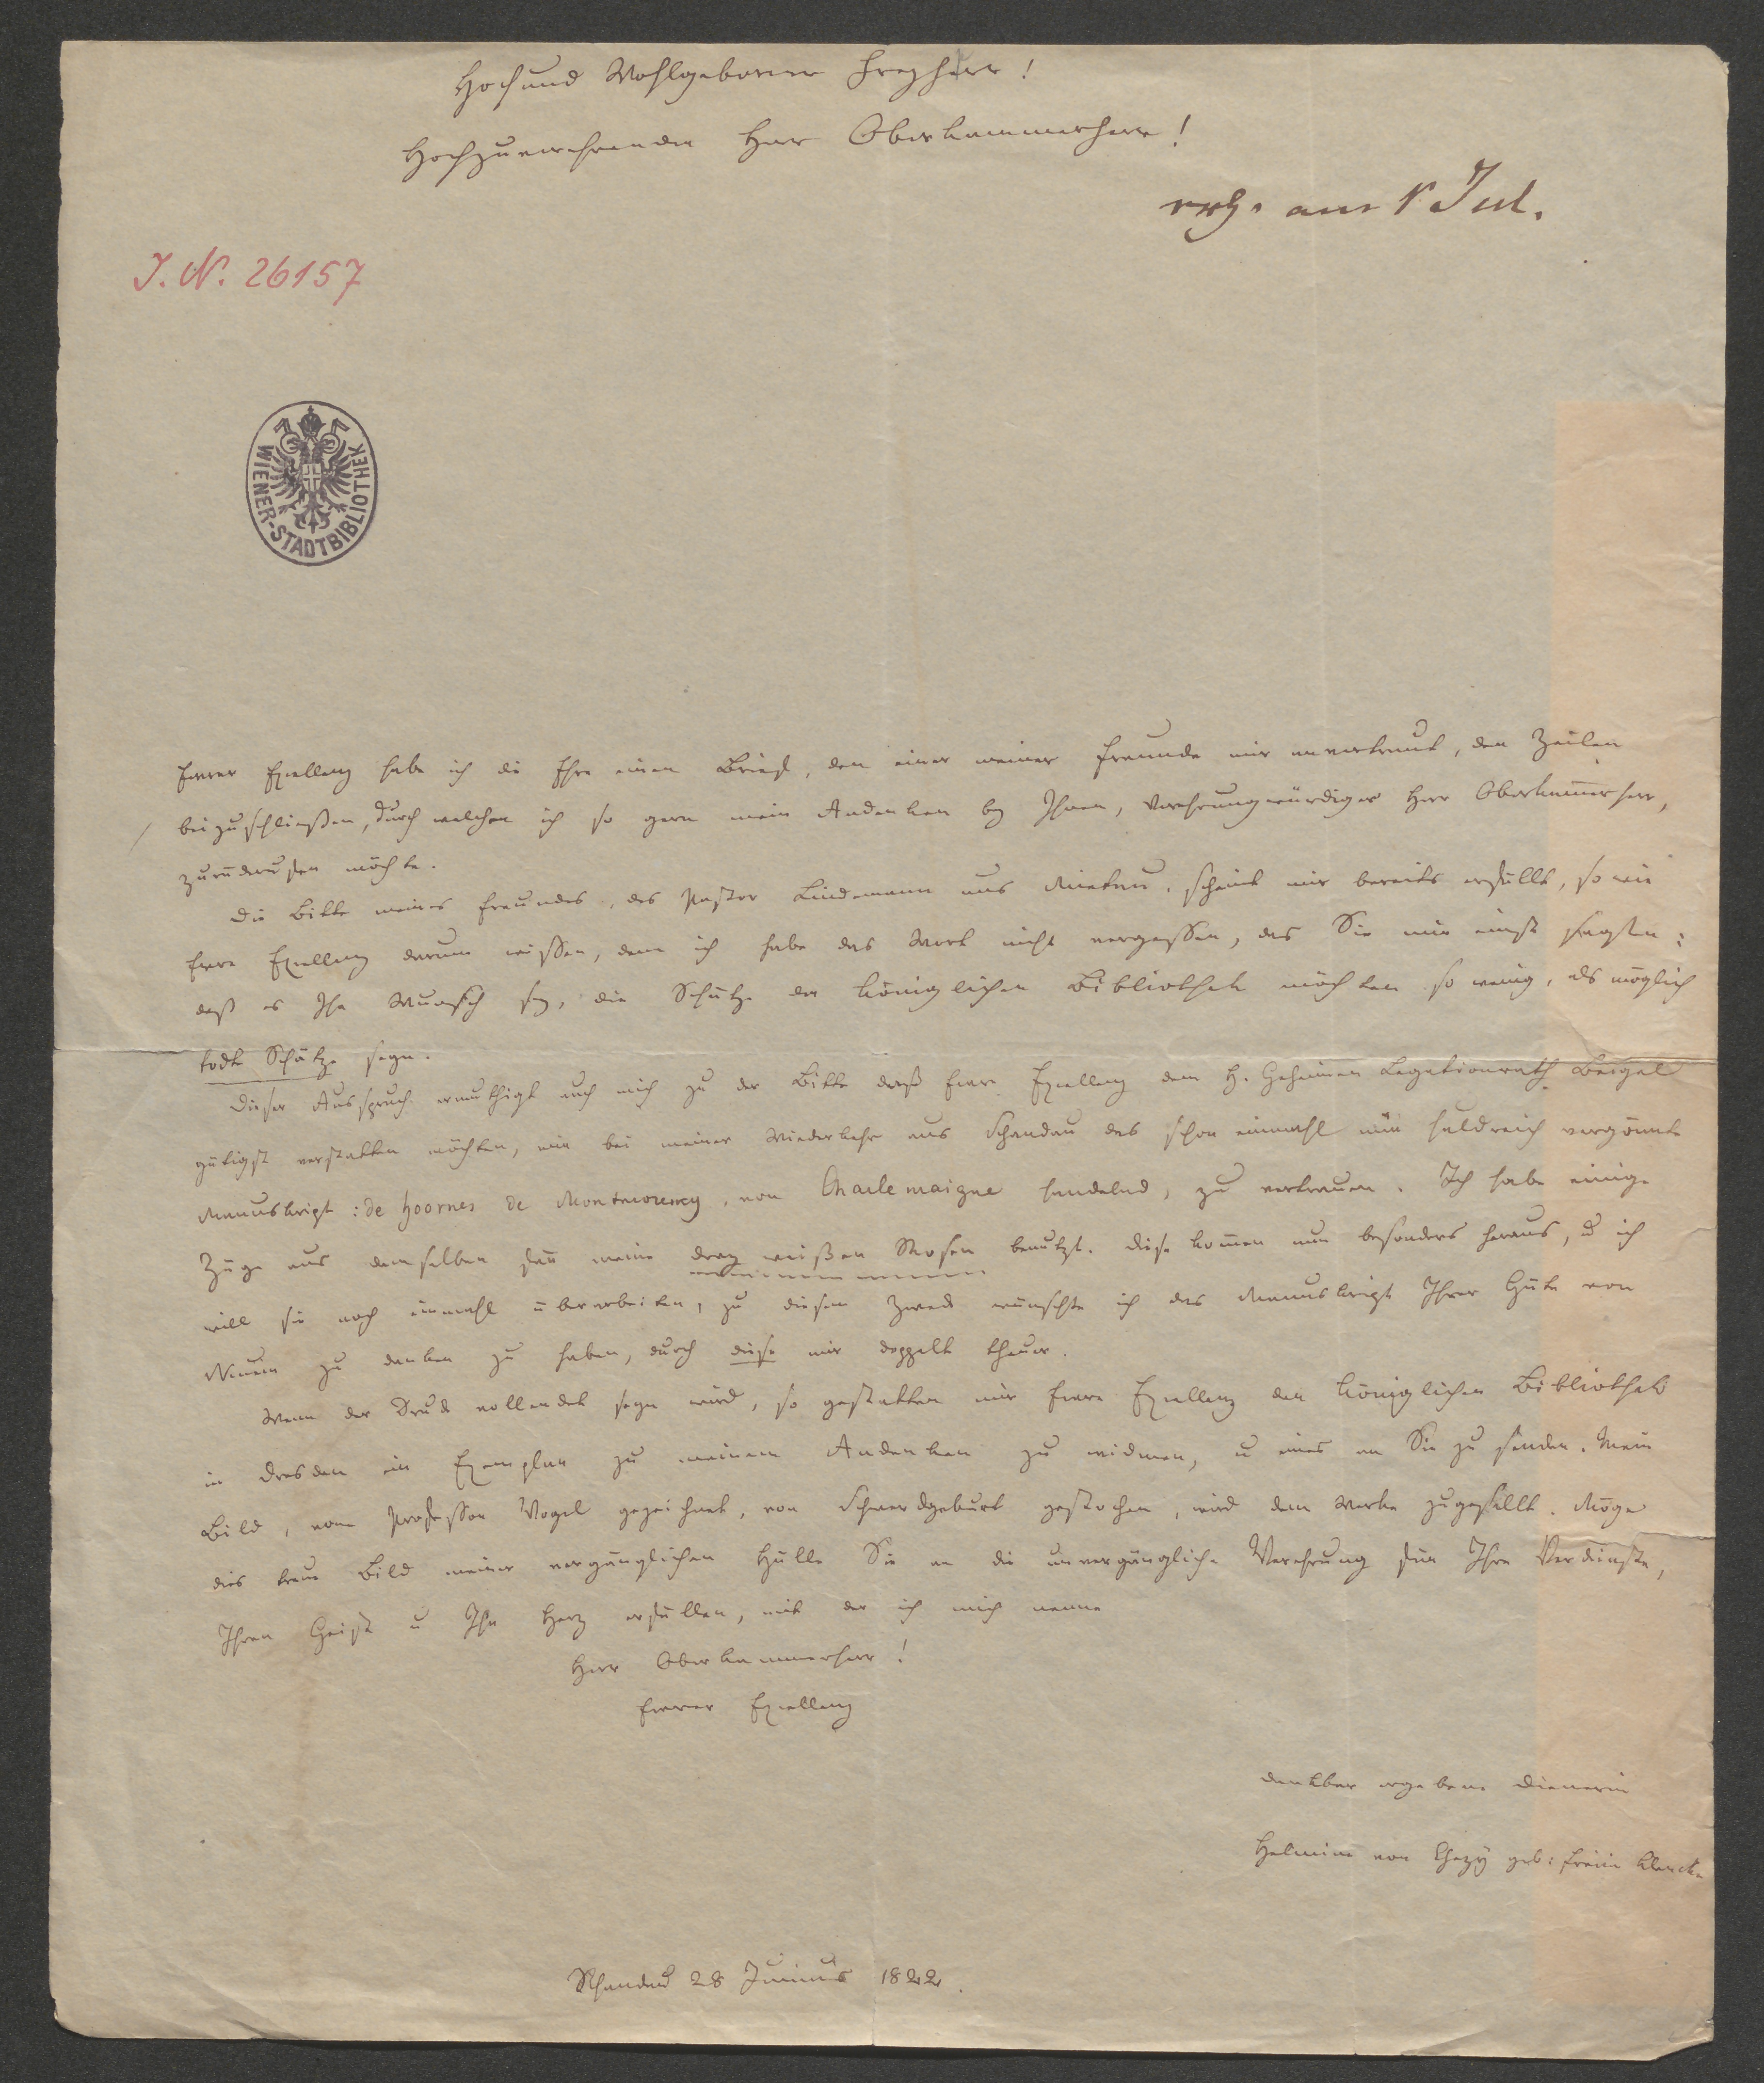 Hoch und Wohlgeborner Freyherr!
Hochzuverehrender Herr Oberkammerherr!
am 1 Jul.
I. N. 26157
WIENER-STADTBIBLIOTHEK
Eurer Exellenz habe ich die Ehre einen Brief, den einer meiner Freunde mir anvertraut, den Zeilen
beizuschließen, durch welchen ich so gern mein Andenken bey Ihnen, Verehrungwürdiger Herr Oberkam̄erherr,
zurückrufen möchte.
Die Bitte meines Freundes, des Pastor Lindemann aus Mietau, scheint mir bereits erfüllt, so wie
Eure Exellenz darum wissen, denn ich habe das Wort nicht vergessen, das Sie mir einst sagten:
daß es Ihr Wunsch sey, die Schätze der königlichen Bibliothek möchten so wenig, als möglich
todte Schätze seyn.
Dieser Ausspruch ermuthigt auch mich zu der Bitte daß Eure Exellenz dem H. Geheimen Legationrath Beigel
gütigst verstatten möchten, mir bei meiner Wiederkehr aus Schandau das schon einmahl mir huldreich vergönnte
Manuskript: de hoornes de Montmorency, von Charlemaigne handelnd, zu vertrauen. Ich habe einige
Züge aus demselben für meine drey weißen Rosen benutzt. Diese kom̄en nun besonders heraus, u ich
will sie noch einmahl überarbeiten, zu diesem Zweck wünschte ich das Manuskript Ihrer Güte von
Neuem zu danken zu haben, durch diese mir doppelt theuer.
Wenn der Druck vollendet seyn wird, so gestatten mir Eure Exellenz der königlichen Bibliothek
in Dresden ein Exemplar zu meinem Andenken zu widmen, u eines an Sie zu senden. Mein
Bild, vom Professor Vogel gezeichnet, von Schwerdgeburt gestochen, wird dem Werke zugesellt. Möge
dies treue Bild meiner vergänglichen Hülle Sie an die unvergängliche Verehrung für Ihre Verdienste,
Ihren Geist u Ihr Herz erfüllen, mit der ich mich nenne
Herr Oberkammerherr!
Eurer Exellenz
dankbar ergebene Dienerin
Helmina von Chezy geb: Freiin Klencke
Schandau 28 Junius 1822.